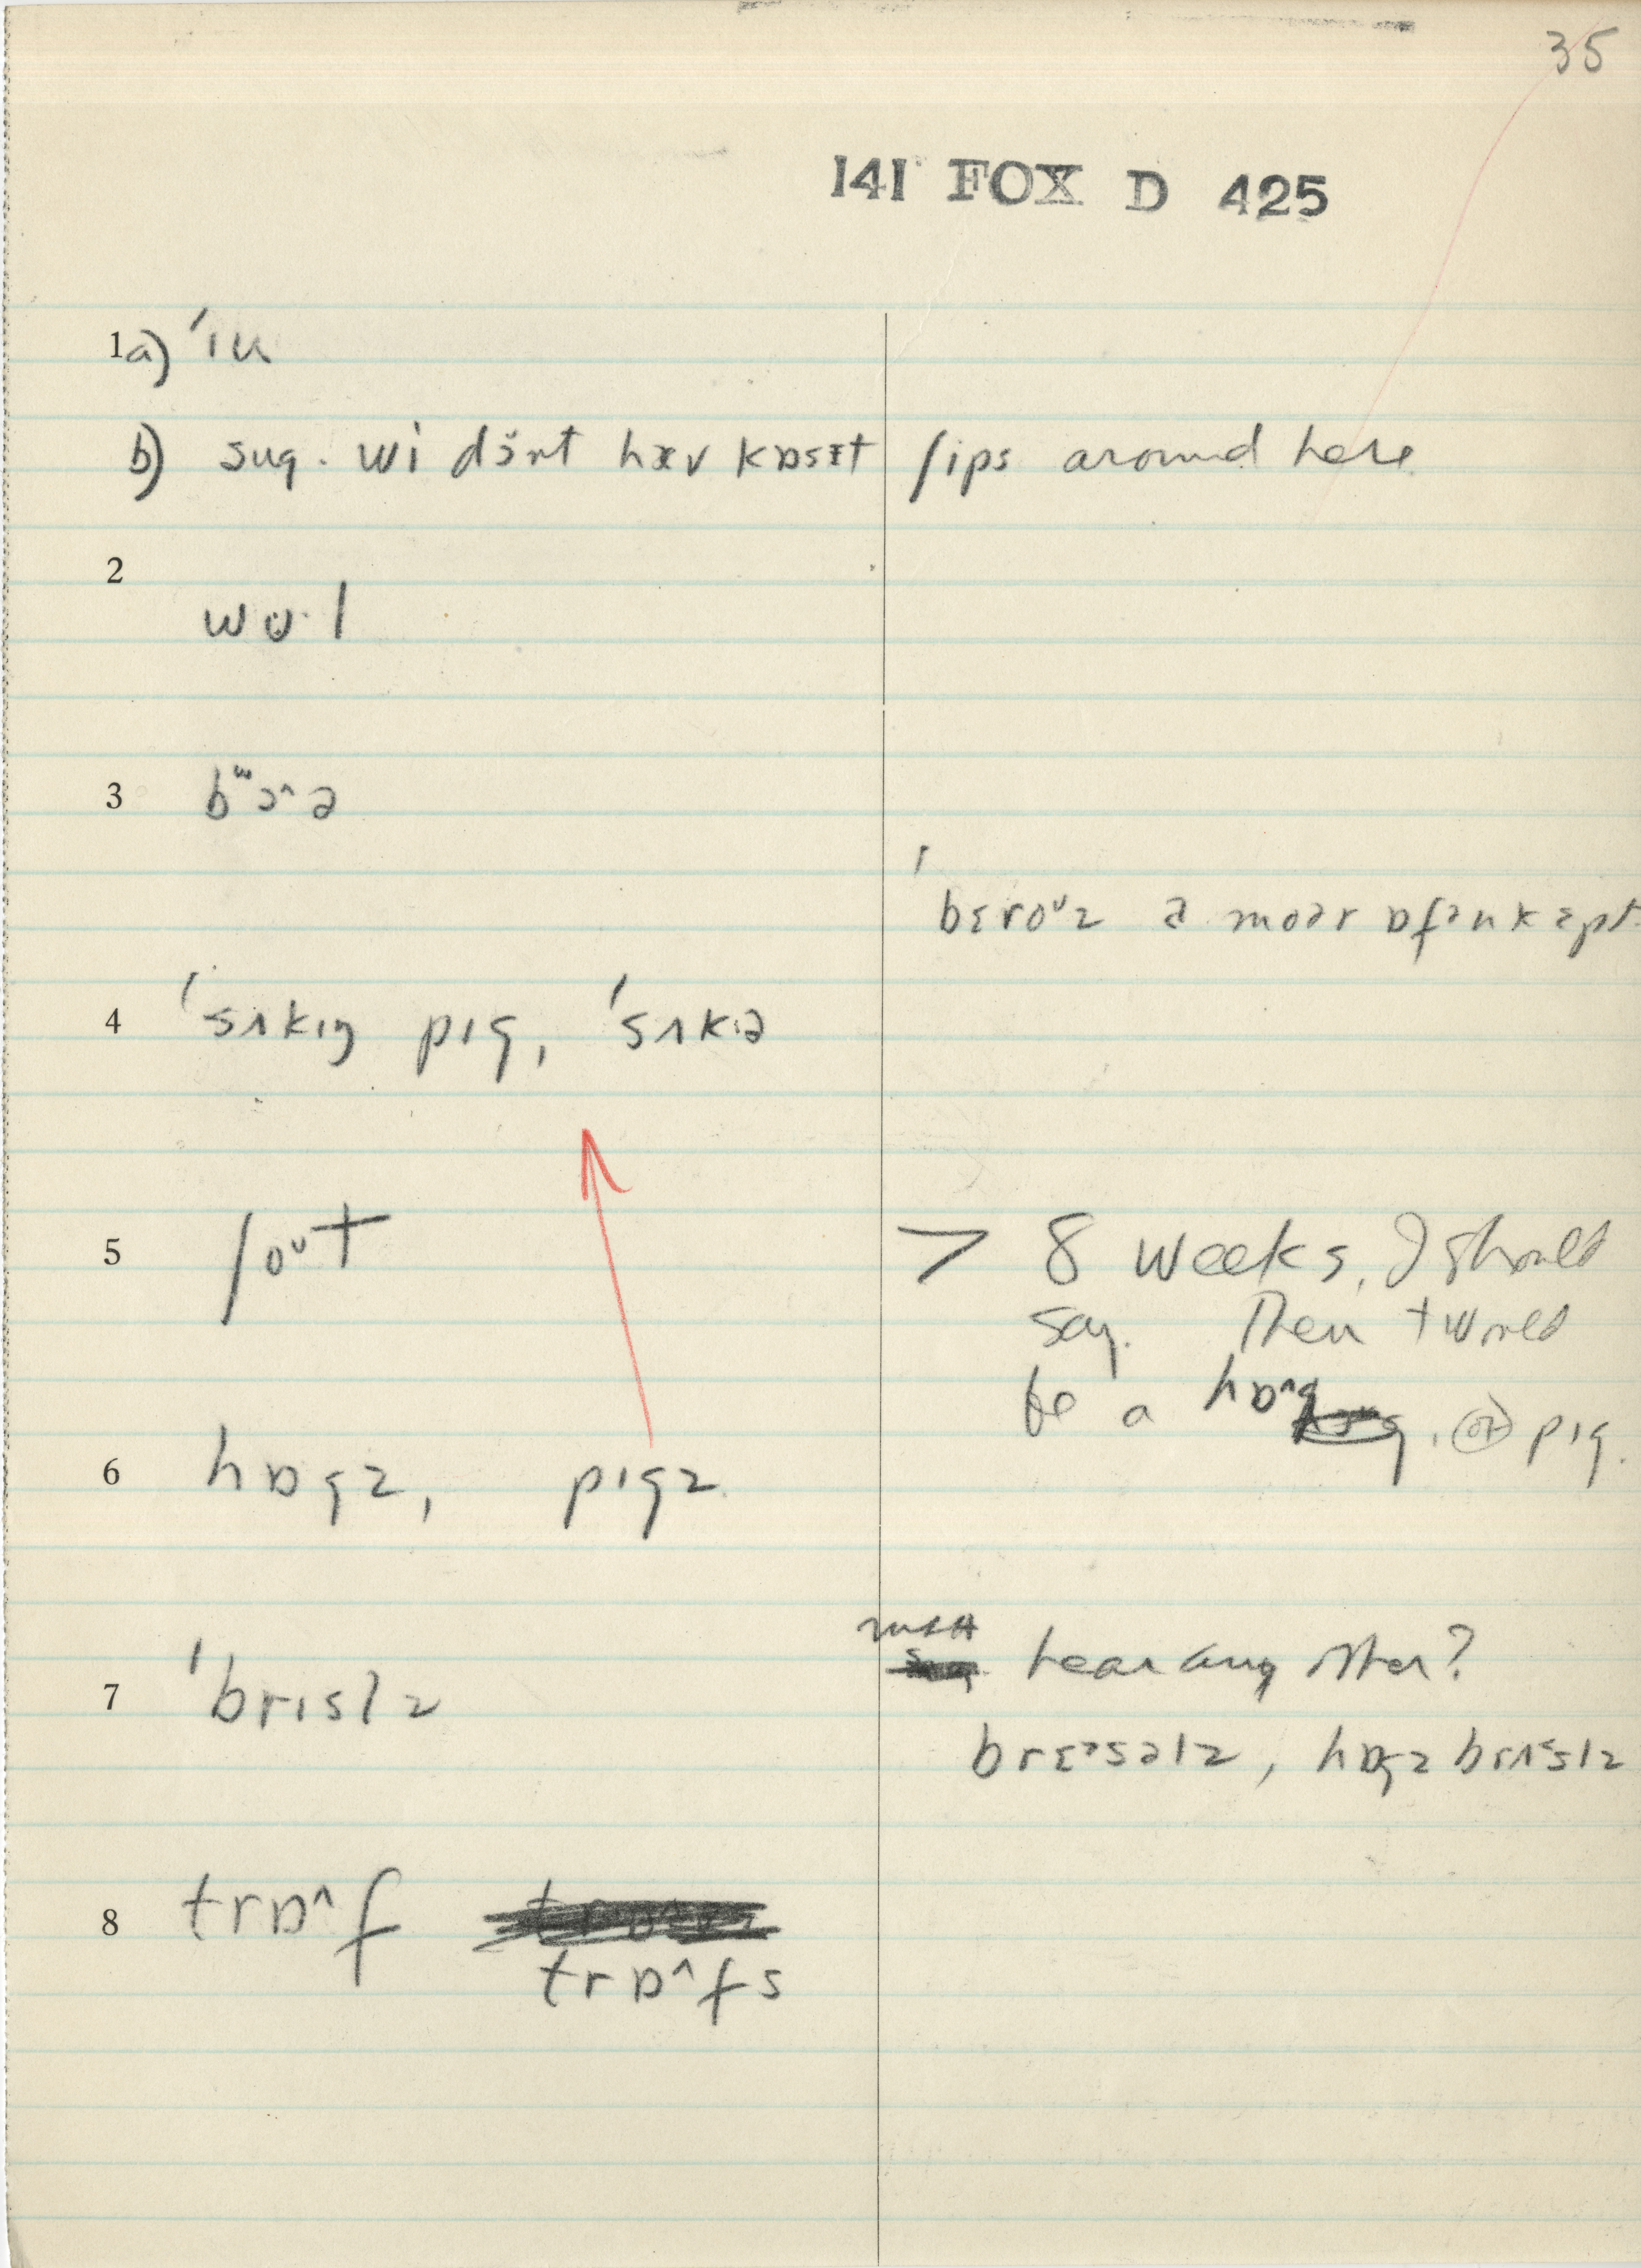 35
141 FOX D 425
1a) ˈɪu
b) sug. wi dɜ̆nt hæv kɒsɛt ʃips around here
2
wʊ·l
3 bʷɔ^ə
ˈbɛroᵘz ə moər ɒfən kɛpt
4 ˈsʌkɪŋ pɪg, ˈsʌkə
5 ʃoᵘt > 8 weeks, I should
say. Then t would
be a hɒ^g, or pɪg.
6 hɒgz, pɪgz.
7 ˈbrɪslz hear any other?
brɛᵊsəlz, hɒgz brɪslz
8 trɒ^f
trɒ^fs